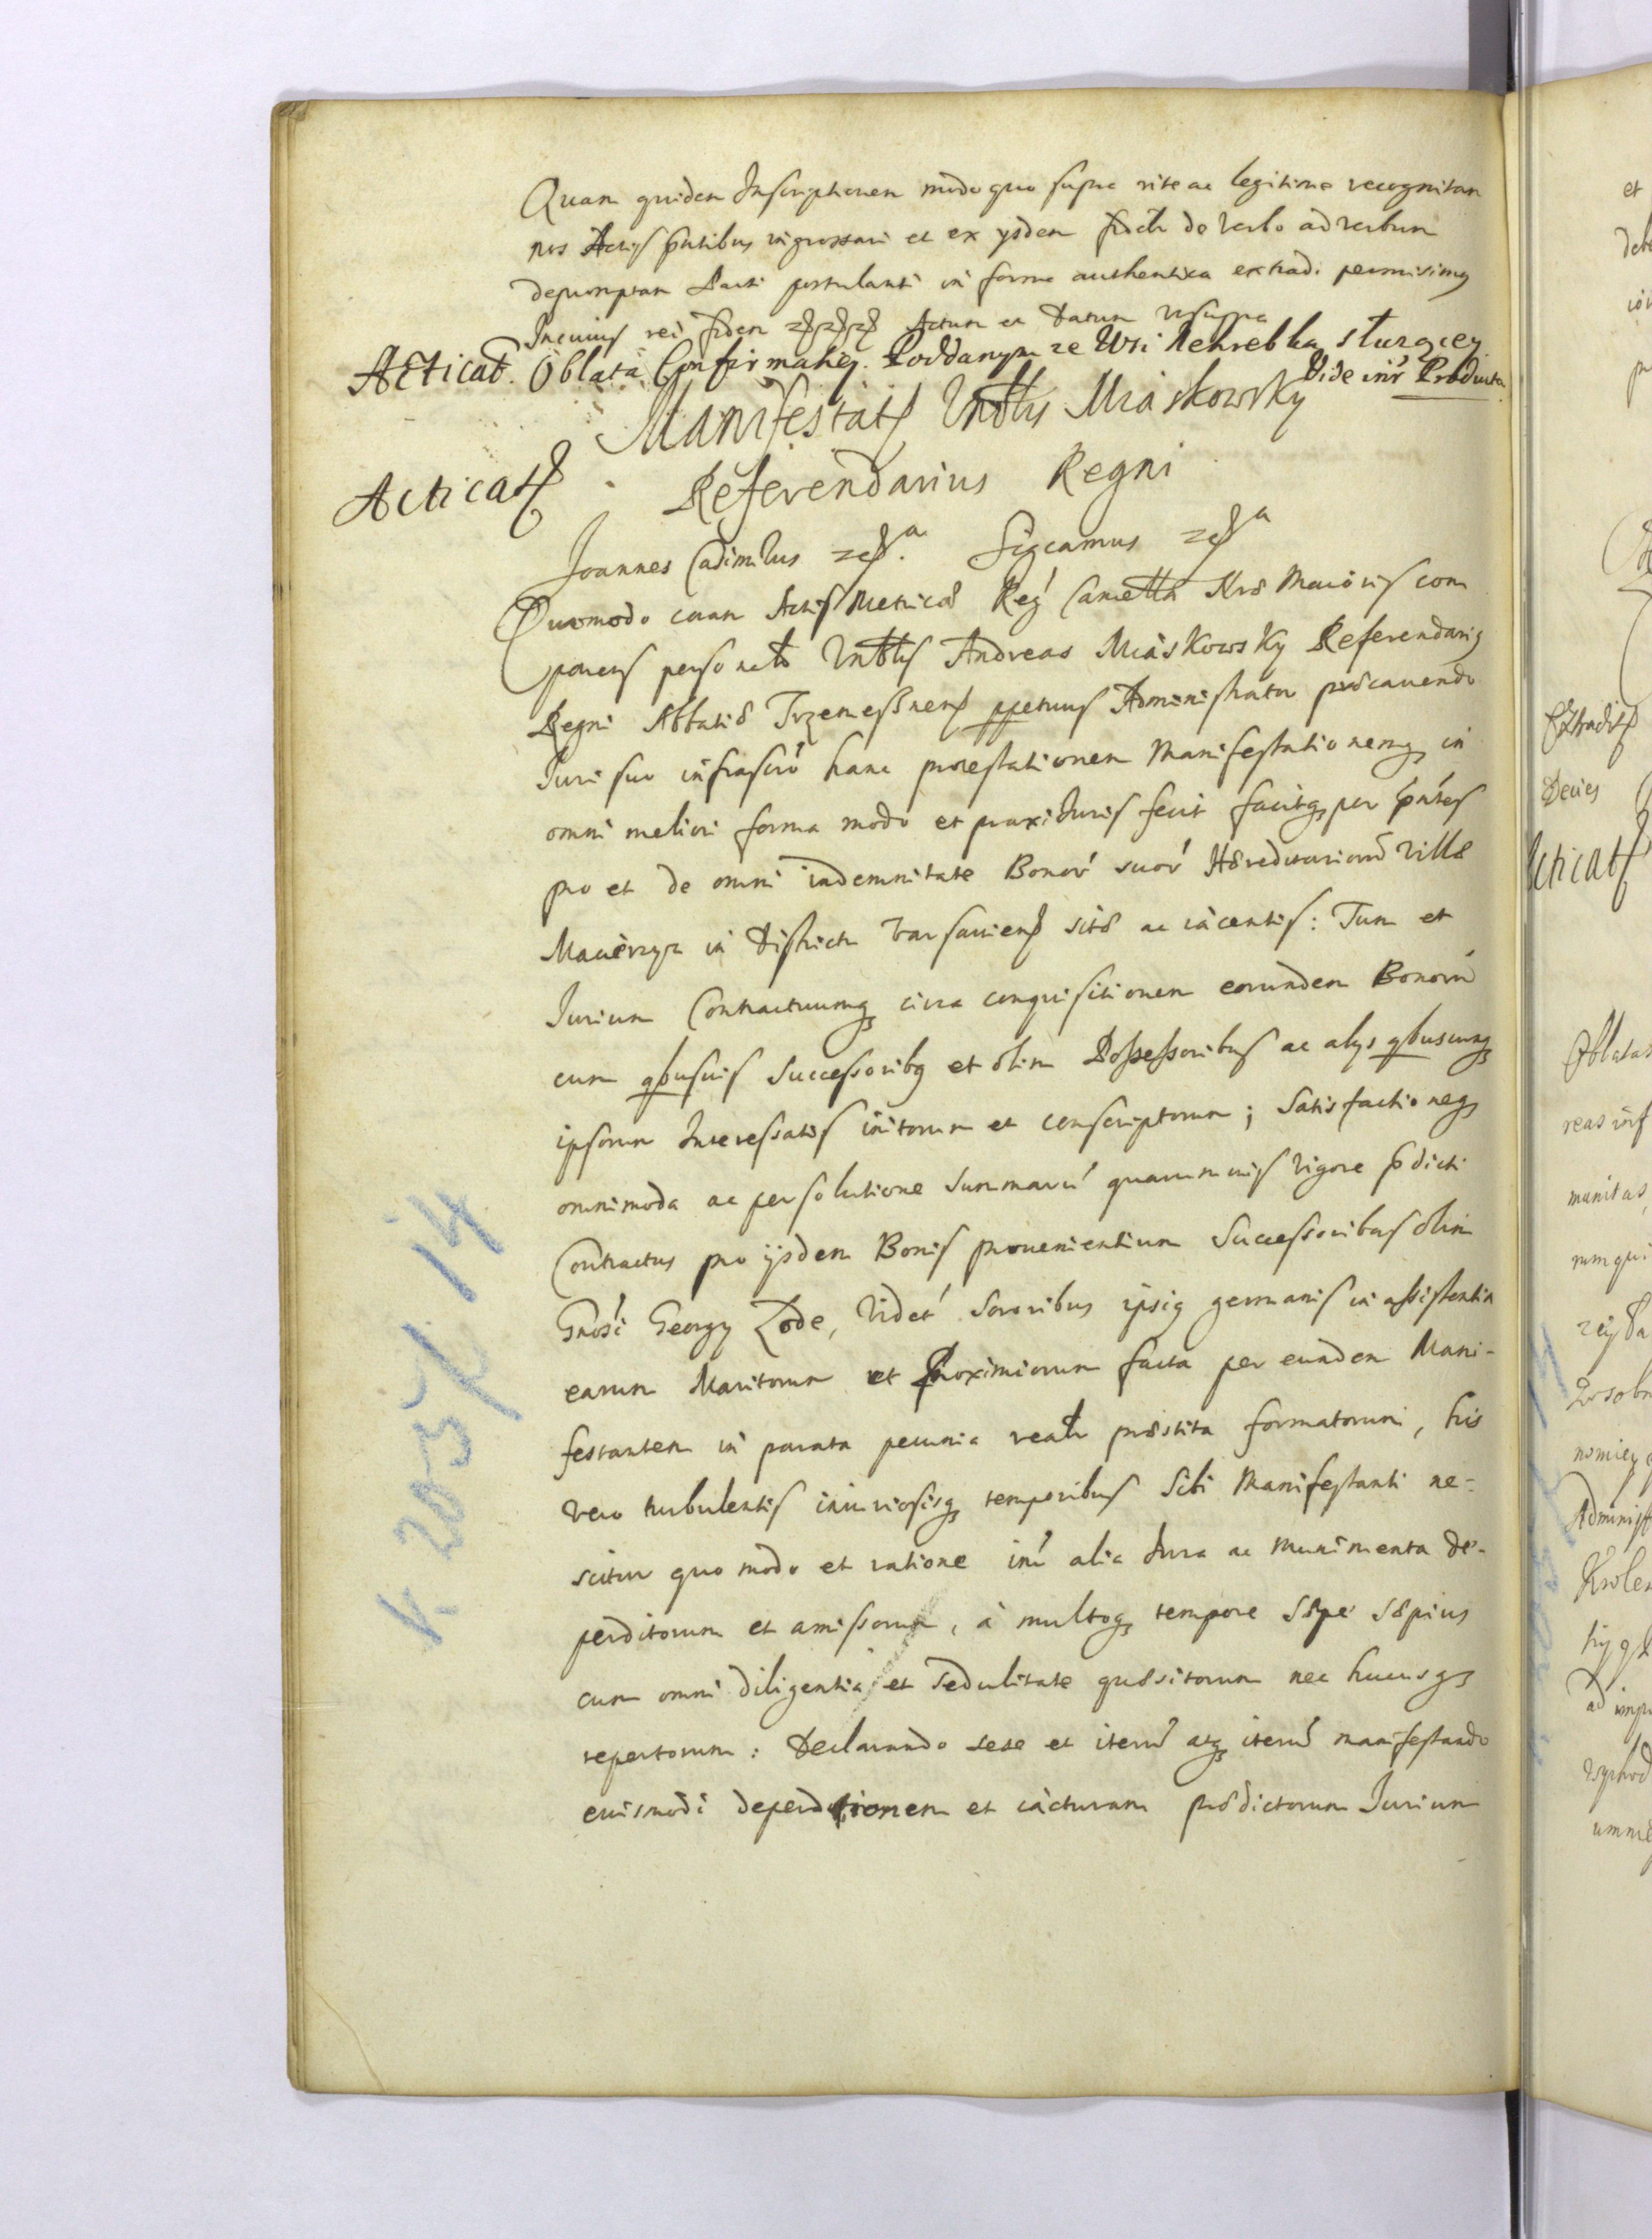 Quam quidem Inscriptionem modo quo supra rite ac legitime recognitam
nos Actis pñtibus ingrossari et ex ysdem de verbo ad verbum
depromptam Parti postulanti in forma authentica extradi permisimus
In cuius rei fidem Actum et Datum ut supra
Acticat. Oblata Confirmatiey Poddanym ze Wsi Nehrebka słuzącey
Vide inr Producta
Manifestat Vrblis Miaskowsky
Acticat Referendarius Regni
Joannes Casimirus Sigcamus
Quomodo coram Actis Metricæ Reg Cancell Nræ Maioris com
parens personalr Vrblis Andreas Miaskowsky Referendarius
Regni Abbatiæ Trzemesznens ppetuus Administrator præcavendo
Juri suo infrascro hanc protestationem Manifestationemq in
omni meliori forma modo et praxi Juris fecit facitq per pñtes
pro et de omni indemnitate Bonor suor Hæreditariorũ Villæ
Macierzyz in Districtu Varsaviens sitæ ac iacentis: Tum et
Jurium Contractuumq circa conquisitionem eorundem Bonorũ
cum qbusuis Successoribq et olim Possessoribus ac alys qbuscunq
ipsorum Interessatis initorum et conscriptorum; Satisfactioneq
omnimoda ac persolutione Summaru quarumuis vigore pdicti
Contractus pro ysdem Bonis prouenientium Successoribus olim
Gnosi Georgy Zode, Videt Sororibus ipsiq germanis in assistentia
earum Maritorum et Proximiorum facta per eundem Mani-
festantem in parata pecunia realr præstita formatorum, his
vero turbulentis iniuriosisq temporibus Sibi Manifestanti ne-
scitur quo modo et ratione int alia Jura ac Munimenta de-
perditorum et amissorum, à multoq tempore Sæpe Sæpius
cum omni diligentia et Sedulitate quæsitorum nec hucusq
repertorum: Declarando sese et iterũ atq iterũ manifestando
eiusmodi deperditionem et iacturam prædictorum Jurium